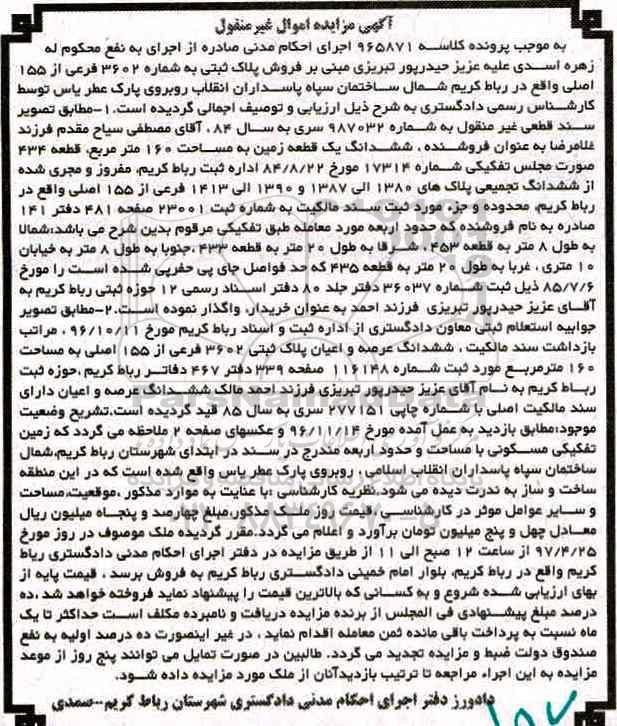 آگهی مزایده اموال غیر منقول
به موجب پرونده کلاسه ۹۶۵۸۷۱ اجرای احکام مدنی صادره از اجرای به نفع محکوم له
زهره اسدی علیه عزیز حیدرپور تبریزی مبنی بر فروش پلاک ثبتی به شماره ۳۶۰۲ فرعی از ۱۵۵
اصلی واقع در رباط کریم شمال ساختمان سپاه پاسداران انقلاب روبروی پارک عطر یاس توسط
کارشناس رسمی دادگستری به شرح ذیل ارزیابی و توصیف اجمالی گردیده است.۱-مطابق تصویر
سند قطعی غیر منقول به شماره ۹۸۷۰۳۲ سری به سال ۸۴ ، آقای مصطفی سیاح مقدم فرزند
غلامرضا به عنوان فروشنده ، ششدانگ یک قطعه زمین به مساحت ۱۶۰ متر مربع، قطعه ۴۳۴
صورت مجلس تفکیکی شماره ۱۷۳۱۴ مورخ ۸۴/۸/۲۲ اداره ثبت رباط کریم، مفروز و مجزی شده
از ششدانگ تجمیعی پلاک های ۱۳۸۰ الی ۱۳۸۷ و ۱۳۹۰ الی ۱۴۱۳ فرعی از ۱۵۵ اصلی واقع در
رباط کریم، محدوده و جزء مورد ثبت سند مالکیت به شماره ثبت ۲۳۰۰۱ صفحه ۴۸۱ دفتر ۱۴۱
صادره به نام فروشنده که حدود اربعه مورد معامله طبق تفکیکی مرقوم بدین شرح می باشد:شمالا
به طول ۸ متر به قطعه ۴۵۳، شرقا به طول ۲۰ متر به قطعه ۴۳۳ ،جنوبا به طول ۸ متر به خیابان
۱۰ متری ، غربا به طول ۲۰ متر به قطعه ۴۳۵ که حد فواصل جای پی حفرپی شده است را مورخ
۸۵/۷/۶ ذیل ثبت شماره ۳۶۰۳۷ دفتر جلد ۸۰ دفتر اسناد رسمی ۱۲ حوزه ثبتی رباط کریم به
آقای عزیز حیدرپور تبریزی فرزند احمد به عنوان خریدار، واگذار نموده است.۲-مطابق تصویر
جوابیه استعلام ثبتی معاون دادگستری از اداره ثبت و اسناد رباط کریم مورخ ۹۶/۱۰/۱۱ ، مراتب
بازداشت سند مالکیت ، ششدانگ عرصه و اعیان پلاک ثبتی ۳۶۰۲ فرعی از ۱۵۵ اصلی به مساحت
۱۶۰ مترمربع مورد ثبت شماره ۱۱۶۱۴۸ صفحه ۳۳۹ دفتر ۴۶۷ دفاتر رباط کریم ،حوزه ثبت
رباط کریم به نام آقای عزیز حیدرپور تبریزی فرزند احمد مالک ششدانگ عرصه و اعیان دارای
سند مالکیت اصلی با شماره چاپی ۲۷۷۱۵۱ سری به سال ۸۵ قید گردیده است.تشریح وضعیت
موجود:مطابق بازدید به عمل آمده مورخ ۹۶/۱۱/۱۴ و عکسهای صفحه ۲ ملاحظه می گردد که زمین
تفکیکی مسکونی با مساحت و حدود اربعه مندرج در سند در ابتدای شهرستان رباط کریم،شمال
ساختمان سپاه پاسداران انقلاب اسلامی ، روبروی پارک عطر یاس واقع شده است که در این منطقه
ساخت و ساز به ندرت دیده می شود.نظریه کارشناسی :با عنایت به موارد مذکور ،موقعیت،مساحت
و سایر عوامل موثر در کارشناسی ،قیمت روز ملک مذکور،مبلغ چهارصد و پنجاه میلیون ریال
معادل چهل و پنج میلیون تومان برآورد و اعلام می گردد.مقرر گردیده ملک موصوف در روز مورخ
۹۷/۴/۲۵ از ساعت ۱۲ صبح الی ۱۱ از طریق مزایده در دفتر اجرای احکام مدنی دادگستری رباط
کریم واقع در رباط کریم، بلوار امام خمینی دادگستری رباط کریم به فروش برسد ، قیمت پایه از
بهای ارزیابی شده شروع و به کسانی که بالاترین قیمت را پیشنهاد نماید فروخته خواهد شد ،ده
درصد مبلغ پیشنهادی فی المجلس از برنده مزایده دریافت و نامبرده مکلف است حداکثر تا یک
ماه نسبت به پرداخت باقی مانده ثمن معامله اقدام نماید ، در غیر اینصورت ده درصد اولیه به نفع
صندوق دولت ضبط و مزایده تجدید می گردد. طالبین در صورت تمایل می توانند پنج روز از موعد
مزایده به این اجراء مراجعه تا ترتیب بازدیدآنان از ملک مورد مزایده داده شود.
دادورز دفتر اجرای احکام مدنی دادگستری شهرستان رباط کریم--صمدی